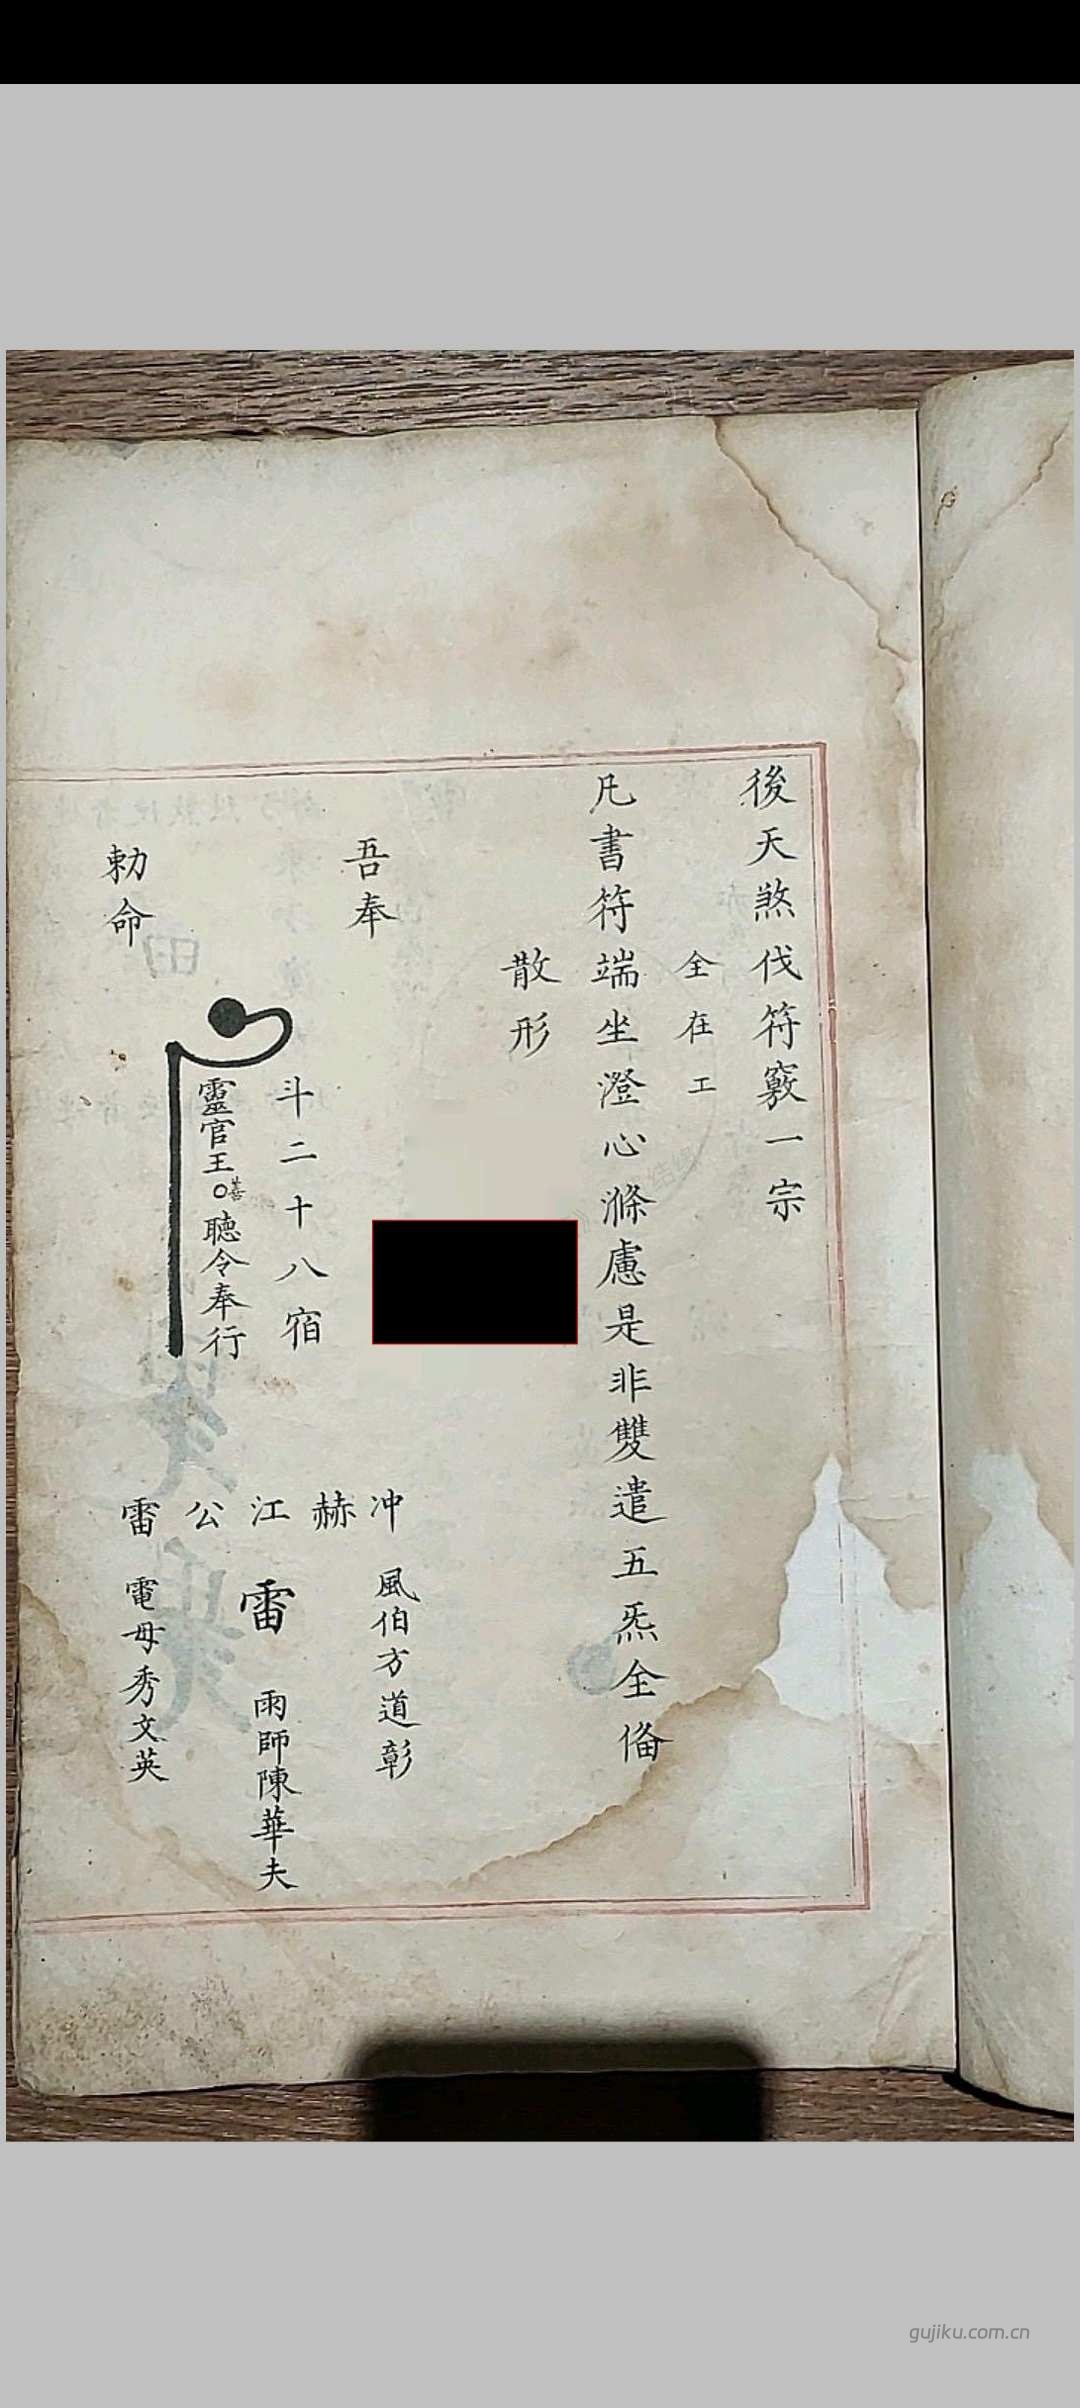 後天煞伐符竅一宗
全在工
凡書符端坐澄心滌慮是非雙遣五炁全備
散形
吾奉
斗二十八宿
靈官王善聽令奉行
勅命
冲 風伯方道彰
赫
江 雷 雨師陳華夫
公
雷 電母秀文英
gujiku.com.cn